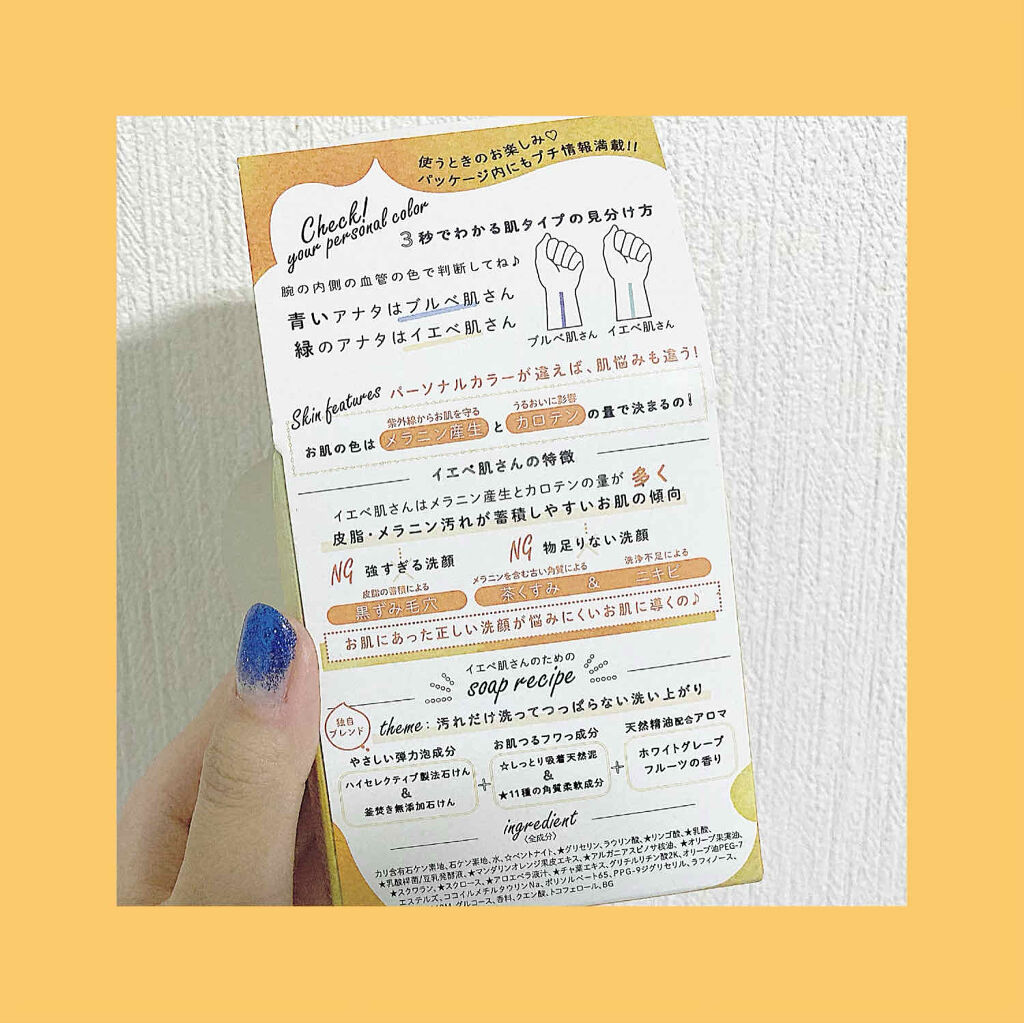 使うときのお楽しみ♡
パッケージ内にもプチ情報満載!!
Check!
your personal color
3秒でわかる肌タイプの見分け方
腕の内側の血管の色で判断してね♪
青いアナタはブルベ肌さん
緑のアナタはイエベ肌さん
ブルベ肌さん イエベ肌さん
Skin features パーソナルカラーが違えば、肌悩みも違う!
紫外線からお肌を守る うるおいに影響
お肌の色はメラニン産生とカロテンの量で決まるの!
イエベ肌さんの特徴
イエベ肌さんはメラニン産生とカロテンの量が 多く
皮脂・メラニン汚れが蓄積しやすいお肌の傾向
NG 強すぎる洗顔
NG 物足りない洗顔
皮脂の蓄積による
黒ずみ毛穴
メラニンを含む古い角質による 洗浄不足による
茶くすみ & ニキビ
お肌にあった正しい洗顔が悩みにくいお肌に導くの♪
イエベ肌さんのための
soap recipe
独自
ブレンド
theme:汚れだけ洗ってつっぱらない洗い上がり
やさしい弾力泡成分
ハイセレクティブ製法石けん
&
釜焚き無添加石けん
+
お肌つるフワっ成分
☆しっとり吸着天然泥
&
★11種の角質柔軟成分
+
天然精油配合アロマ
ホワイトグレープ
フルーツの香り
ingredient
(全成分)
カリ含有石ケン素地、石ケン素地、水、☆ベントナイト、★グリセリン、ラウリン酸、★リンゴ酸、★乳酸、
★乳酸桿菌/豆乳発酵液、★マンダリンオレンジ果皮エキス、★アルガニアスピノサ核油、★オリーブ果実油、
★スクワラン、★スクロース、★アロエベラ液汁、★チャ葉エキス、グリチルリチン酸2K、オリーブ油PEG-7
エステルズ、ココイルメチルタウリンNa、ポリソルベート65、PPG-9ジグリセリル、ラフィノース、
グルコース、香料、クエン酸、トコフェロール、BG